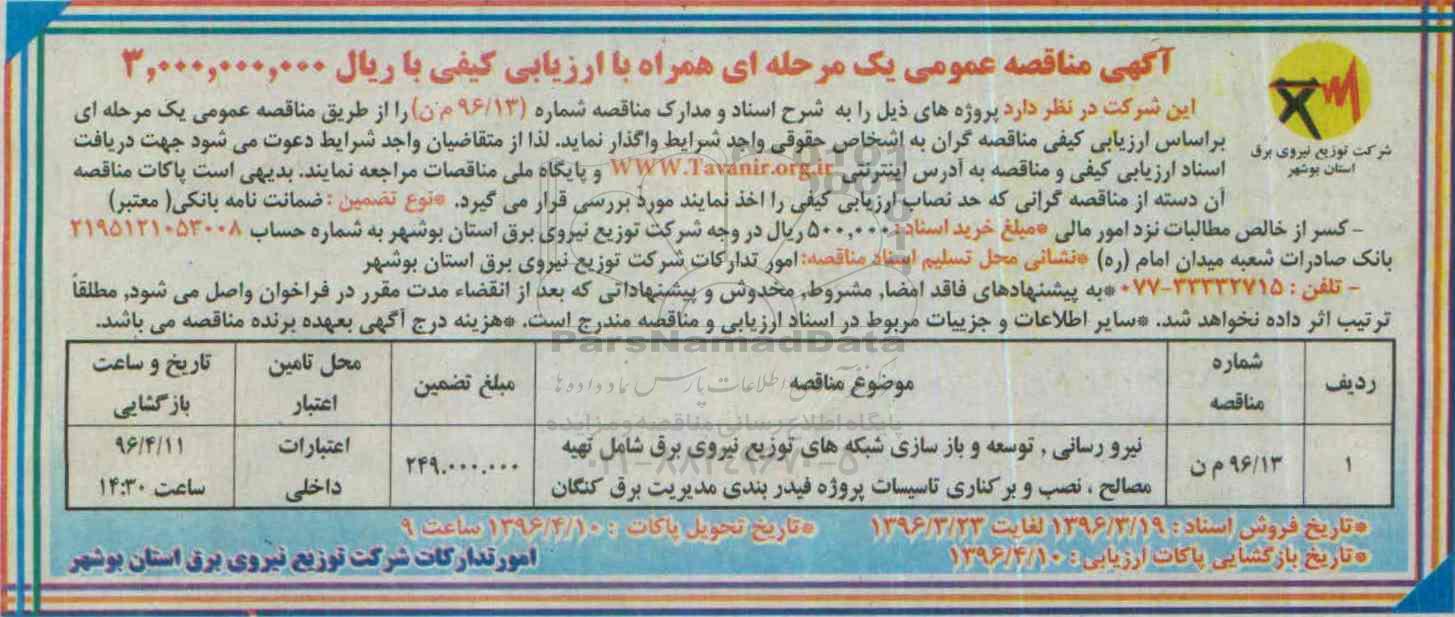 آگهی مناقصه عمومی یک مرحله ای همراه با ارزیابی کیفی با ریال ۳,۰۰۰,۰۰۰,۰۰۰
شرکت توزیع نیروی برق
استان بوشهر
این شرکت در نظر دارد پروژه های ذیل را به شرح اسناد و مدارک مناقصه شماره (۹۶/۱۳ م ن) را از طریق مناقصه عمومی یک مرحله ای
براساس ارزیابی کیفی مناقصه گران به اشخاص حقوقی واجد شرایط واگذار نماید. لذا از متقاضیان واجد شرایط دعوت می شود جهت دریافت
اسناد ارزیابی کیفی و مناقصه به آدرس اینترنتی WWW.Tavanir.org.ir و پایگاه ملی مناقصات مراجعه نمایند. بدیهی است پاکات مناقصه
آن دسته از مناقصه گرانی که حد نصاب ارزیابی کیفی را اخذ نمایند مورد بررسی قرار می گیرد. *نوع تضمین : ضمانت نامه بانکی( معتبر)
- کسر از خالص مطالبات نزد امور مالی *مبلغ خرید اسناد : ۵۰۰,۰۰۰ ریال در وجه شرکت توزیع نیروی برق استان بوشهر به شماره حساب ۲۱۹۵۱۲۱۰۵۳۰۰۸
بانک صادرات شعبه میدان امام (ره) *نشانی محل تسلیم اسناد مناقصه: امور تدارکات شرکت توزیع نیروی برق استان بوشهر
- تلفن : ۳۳۳۳۲۷۱۵-۰۷۷ *به پیشنهادهای فاقد امضا, مشروط, مخدوش و پیشنهاداتی که بعد از انقضاء مدت مقرر در فراخوان واصل می شود, مطلقاً
ترتیب اثر داده نخواهد شد. *سایر اطلاعات و جزییات مربوط در اسناد ارزیابی و مناقصه مندرج است. *هزینه درج آگهی بعهده برنده مناقصه می باشد.
ردیف شماره مناقصه موضوع مناقصه مبلغ تضمین محل تامین اعتبار تاریخ و ساعت بازگشایی
۱ ۹۶/۱۳ م ن نیرو رسانی , توسعه و باز سازی شبکه های توزیع نیروی برق شامل تهیه مصالح ، نصب و برکناری تاسیسات پروژه فیدر بندی مدیریت برق کنگان ۲۴۹.۰۰۰.۰۰۰ اعتبارات داخلی ۹۶/۴/۱۱ ساعت ۱۴:۳۰
*تاریخ فروش اسناد : ۱۳۹۶/۳/۱۹ لغایت ۱۳۹۶/۳/۲۳ *تاریخ تحویل پاکات : ۱۳۹۶/۴/۱۰ ساعت ۹
*تاریخ بازگشایی پاکات ارزیابی : ۱۳۹۶/۴/۱۰
امورتدارکات شرکت توزیع نیروی برق استان بوشهر
ParsNamadData
پایگاه اطلاع رسانی مناقصه و مزایده
۰۲۱-۸۸۳۴۹۶۷۰-۵